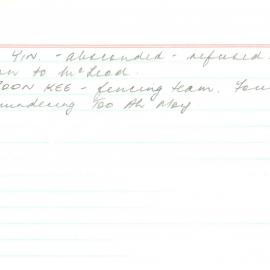 YIN. - absconded - refused
to McLeod.
OON KEE - fencing team. Fou
murdering Too Ah Moy